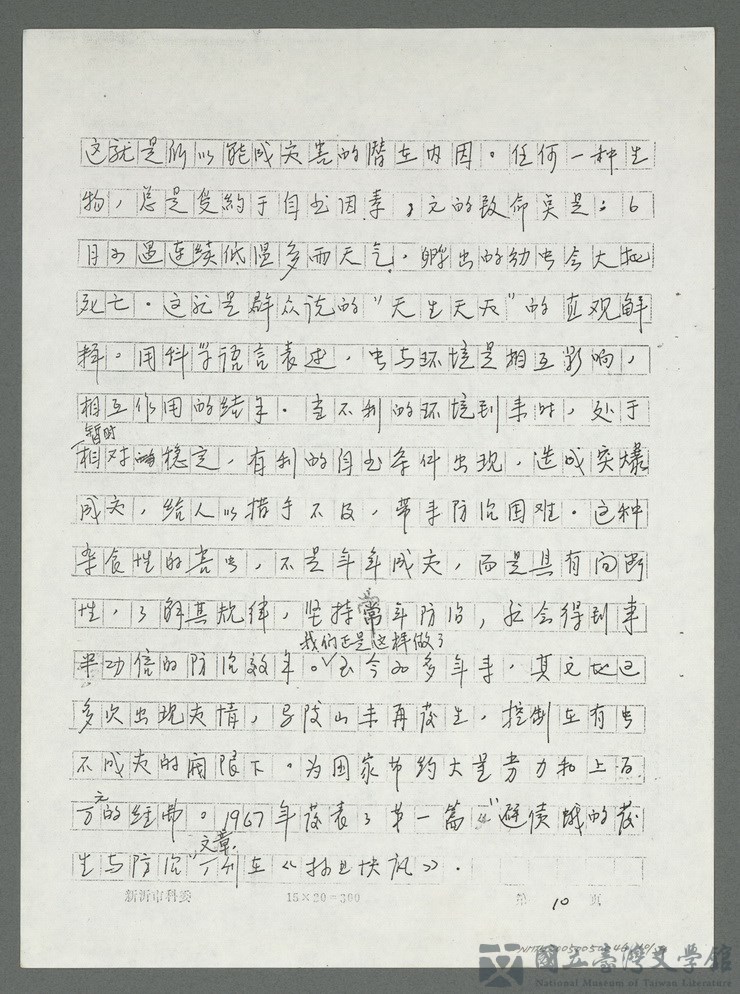 这就是所以能成灾害的潜在内因。任何一种生
物，总是受约于自然因素，它的致命臭是：6
月如遇连续低温多雨天气，孵出的幼虫会大批
死亡。这就是群众说的“天生天灭”的直观解
释。用科学语言表述，虫与环境是相互影响，
相互作用的结果。当不利的环境到来时，处于
暂时
相对的稳定，有利的自然条件出现，造成突爆
成灾，给人以措手不及，带来防治困难。这种
杂食性的害虫，不是年年成灾，而是具有间断
性，了解其规律，坚持常年防治，就会得到事
我们正是这样做了
半功倍的防治效果。至今20多年来，其它地区
多次出现灾情，马陵山未再发生，控制在有虫
不成灾的阈限下。为国家节约大量劳力和上百
万元的经费。1967年发表了第一篇“避债蛾的发
文章，
生与防治”刊在《》。
新沂市科委
15×20=300
第 10 页
國立臺灣文學館
National Museum of Taiwan Literature